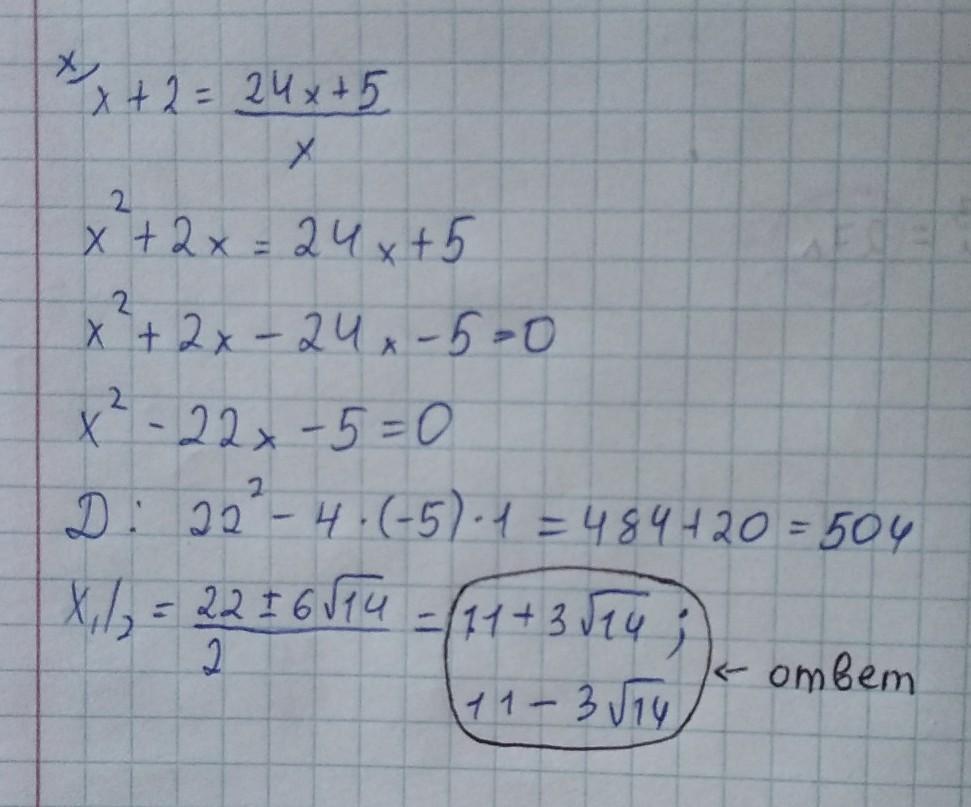 x/ x + 2 = (24x + 5)/x
x² + 2x = 24x + 5
x² + 2x - 24x - 5 = 0
x² - 22x - 5 = 0
D: 22² - 4 · (-5) · 1 = 484 + 20 = 504
x₁/₂ = (22 ± 6√14)/2 = 11 + 3√14 ;
11 - 3√14 ← ответ